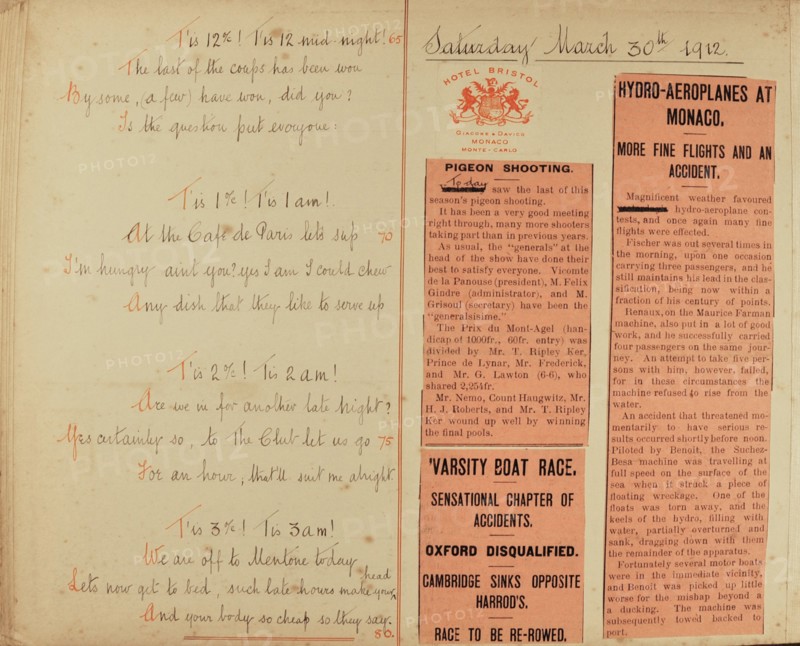 T'is 12 ⁰⁄c! T'is 12 mid night! 65
The last of the coups has been won
By some, (a few) have won, did you?
Is the question put everyone:
T'is 1 ⁰⁄c! T'is 1 am!
At the Café de Paris let's sup 70
I'm hungry aint you? yes I am I could chew
Any dish that they like to serve up
T'is 2 ⁰⁄c! Tis 2 am!
Are we in for another late night?
Yes certainly so, to The Club let us go 75
For an hour, that'll suit me alright
T'is 3 ⁰⁄c! Tis 3 am!
We are off to Mentone today
Lets now get to bed, such late hours make your head
And your body so cheap so they say.
80.
Saturday March 30th 1912.
HOTEL BRISTOL
MONACO
MONTE-CARLO
PIGEON SHOOTING.
To day saw the last of this
season's pigeon shooting.
It has been a very good meeting
right through, many more shooters
taking part than in previous years.
As usual, the "generals" at the
head of the show have done their
best to satisfy everyone. Vicomte
de la Panouse (president), M. Felix
Gindre (administrator), and M.
Grisoul (secretary) have been the
"generalsisime."
The Prix du Mont-Agel (han-
dicap of 1000fr., 60fr. entry) was
divided by Mr. T. Ripley Ker,
Prince de Lynar, Mr. Frederick,
and Mr. G. Lawton (6-6), who
shared 2,254fr.
Mr. Nemo, Count Haugwitz, Mr.
H. J. Roberts, and Mr. T. Ripley
Ker wound up well by winning
the final pools.
'VARSITY BOAT RACE.
SENSATIONAL CHAPTER OF
ACCIDENTS.
OXFORD DISQUALIFIED.
CAMBRIDGE SINKS OPPOSITE
HARROD'S.
RACE TO BE RE-ROWED.
HYDRO-AEROPLANES AT
MONACO.
MORE FINE FLIGHTS AND AN
ACCIDENT.
Magnificent weather favoured
hydro-aeroplane con-
tests, and once again many fine
flights were effected.
Fischer was out several times in
the morning, upon one occasion
carrying three passengers, and he
still maintains his lead in the clas-
sification, being now within a
fraction of his century of points.
Renaux, on the Maurice Farman
machine, also put in a lot of good
work, and he successfully carried
four passengers on the same jour-
ney. An attempt to take five per-
sons with him, however, failed,
for in these circumstances the
machine refused to rise from the
water.
An accident that threatened mo-
mentarily to have serious re-
sults occurred shortly before noon.
Piloted by Benoit, the Suchez-
Besa machine was travelling at
full speed on the surface of the
sea when it struck a piece of
floating wreckage. One of the
floats was torn away, and the
keels of the hydro, filling with
water, partially overturned and
sank, dragging down with them
the remainder of the apparatus.
Fortunately several motor boats
were in the immediate vicinity,
and Benoit was picked up little
worse for the mishap beyond a
a ducking. The machine was
subsequently towed backed to
port.
PHOTO12